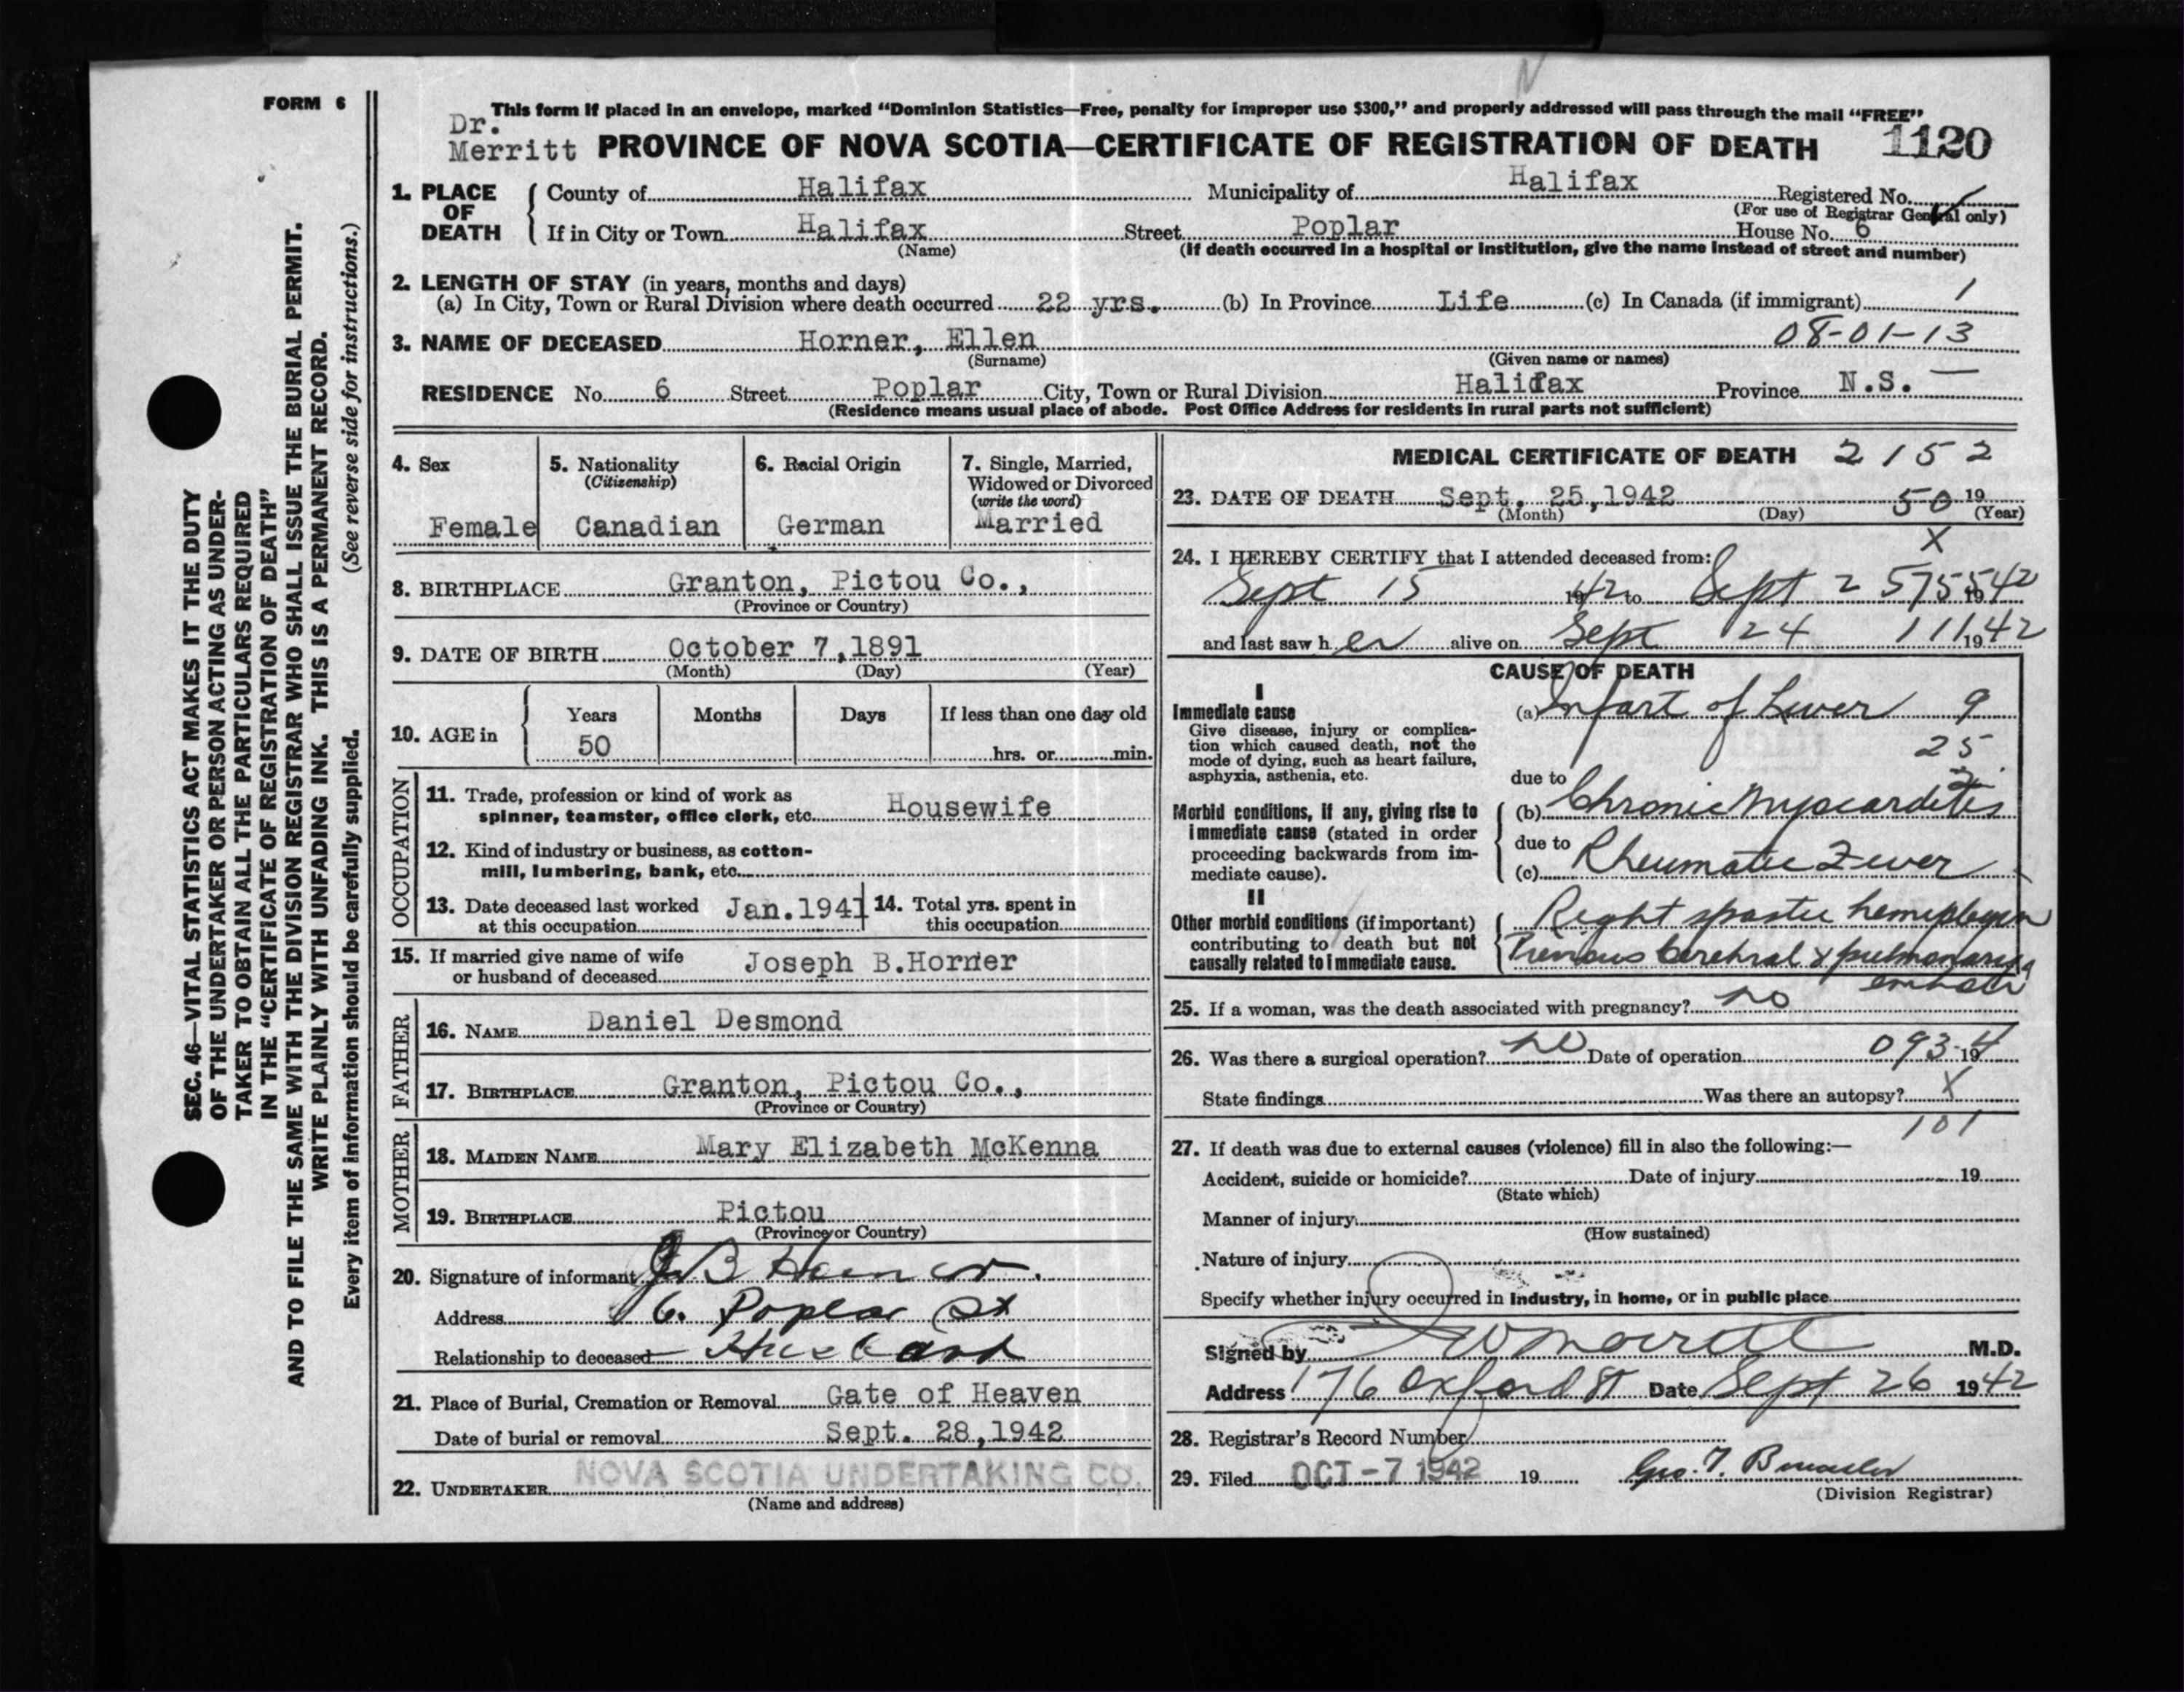 FORM 6
SEC. 46—VITAL STATISTICS ACT MAKES IT THE DUTY
OF THE UNDERTAKER OR PERSON ACTING AS UNDER-
TAKER TO OBTAIN ALL THE PARTICULARS REQUIRED
IN THE "CERTIFICATE OF REGISTRATION OF DEATH"
AND TO FILE THE SAME WITH THE DIVISION REGISTRAR WHO SHALL ISSUE THE BURIAL PERMIT.
WRITE PLAINLY WITH UNFADING INK. THIS IS A PERMANENT RECORD.
Every item of information should be carefully supplied. (See reverse side for instructions.)
This form if placed in an envelope, marked "Dominion Statistics—Free, penalty for improper use $300," and properly addressed will pass through the mail "FREE"
Dr.
Merritt PROVINCE OF NOVA SCOTIA—CERTIFICATE OF REGISTRATION OF DEATH 1120
1. PLACE OF DEATH County of Halifax Municipality of Halifax Registered No.
(For use of Registrar General only)
If in City or Town Halifax Street Poplar House No. 6
(Name) (If death occurred in a hospital or institution, give the name instead of street and number)
2. LENGTH OF STAY (in years, months and days)
(a) In City, Town or Rural Division where death occurred 22 yrs. (b) In Province Life (c) In Canada (if immigrant) 1
3. NAME OF DECEASED Horner, Ellen 08-01-13
(Surname) (Given name or names)
RESIDENCE No. 6 Street Poplar City, Town or Rural Division Halidax Province N.S. —
(Residence means usual place of abode. Post Office Address for residents in rural parts not sufficient)
4. Sex
Female
5. Nationality
(Citizenship)
Canadian
6. Racial Origin
German
7. Single, Married,
Widowed or Divorced
(write the word)
Married
8. BIRTHPLACE Granton, Pictou Co.,
(Province or Country)
9. DATE OF BIRTH October 7,1891
(Month) (Day) (Year)
10. AGE in Years Months Days If less than one day old
50 hrs. or min.
OCCUPATION
11. Trade, profession or kind of work as
spinner, teamster, office clerk, etc. Housewife
12. Kind of industry or business, as cotton-
mill, lumbering, bank, etc.
13. Date deceased last worked
at this occupation Jan.1941
14. Total yrs. spent in
this occupation
15. If married give name of wife
or husband of deceased Joseph B.Horner
FATHER
16. NAME Daniel Desmond
17. BIRTHPLACE Granton, Pictou Co.,
(Province or Country)
MOTHER
18. MAIDEN NAME Mary Elizabeth McKenna
19. BIRTHPLACE Pictou
(Province or Country)
20. Signature of informant J B Horner.
Address 6. Poplar St
Relationship to deceased Husband
21. Place of Burial, Cremation or Removal Gate of Heaven
Date of burial or removal Sept. 28,1942
22. UNDERTAKER NOVA SCOTIA UNDERTAKING CO.
(Name and address)
MEDICAL CERTIFICATE OF DEATH 2152
23. DATE OF DEATH Sept. 25,1942 50 19
(Month) (Day) (Year)
X
24. I HEREBY CERTIFY that I attended deceased from:
Sept 15 1942 to Sept 25 755 1942
and last saw h er alive on Sept 24 111 1942
CAUSE OF DEATH
I
Immediate cause
Give disease, injury or complica-
tion which caused death, not the
mode of dying, such as heart failure,
asphyxia, asthenia, etc.
(a) Infart of Liver 9
25
due to
Morbid conditions, if any, giving rise to
immediate cause (stated in order
proceeding backwards from im-
mediate cause).
(b) Chronic Myocarditis
due to
(c) Rheumatic Fever
II
Other morbid conditions (if important)
contributing to death but not
causally related to immediate cause.
Right spastic hemiplegia
Previous Cerebral & pulmonary
emboli
25. If a woman, was the death associated with pregnancy? no
26. Was there a surgical operation? no Date of operation 093-4 19
State findings Was there an autopsy? X
101
27. If death was due to external causes (violence) fill in also the following:—
Accident, suicide or homicide? Date of injury 19
(State which)
Manner of injury
(How sustained)
Nature of injury
Specify whether injury occurred in industry, in home, or in public place
Signed by Merritt M.D.
Address 176 Oxford St Date Sept 26 1942
28. Registrar's Record Number
29. Filed OCT -7 1942 19 Geo. T.
(Division Registrar)